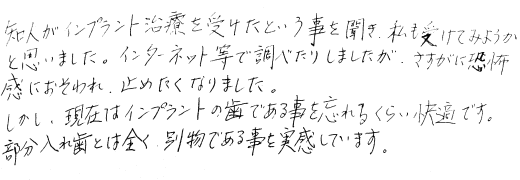 知人がインプラント治療を受けたという事を聞き、私も受けてみようか
と思いました。インターネット等で調べたりしましたが、さすがに恐怖
感におそわれ、止めたくなりました。
しかし、現在はインプラントの歯である事を忘れるくらい快適です。
部分入れ歯とは全く、別物である事を実感しています。